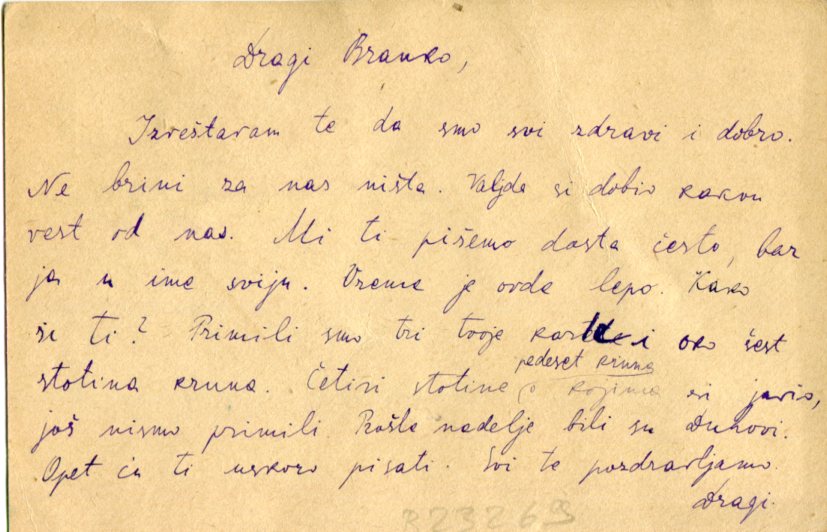 Dragi Branko,
Izveštavam te da smo svi zdravi i dobro.
Ne brini za nas ništa. Valjda si dobio kakvu
vest od nas. Mi ti pišemo dosta često, bar
ja u ime sviju. Vreme je ovde lepo. Kako
si ti? Primili smo tri tvoje karte i oko šest
pedeset kruna
stotina kruna. Četiri stotine (o kojima si javio,
još nismo primili. Prošle nedelje bili su Duhovi.
Opet ću ti uskoro pisati. Svi te pozdravljamo.
Dragi.
R23269